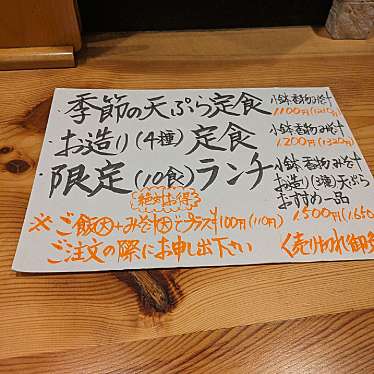 ・季節の天ぷら定食 小鉢 香物 みそ汁
1100円(1210円)
・お造り(4種)定食 小鉢 香物 みそ汁
1200円(1320円)
・限定(10食)ランチ 小鉢 香物 みそ汁
お造り(3種)天ぷら
おすすめ一品
絶対お得
1500円(1650
※ご飯大+みそ汁大でプラス100円(110円)
ご注文の際にお申し出下さい
売り切れ御免